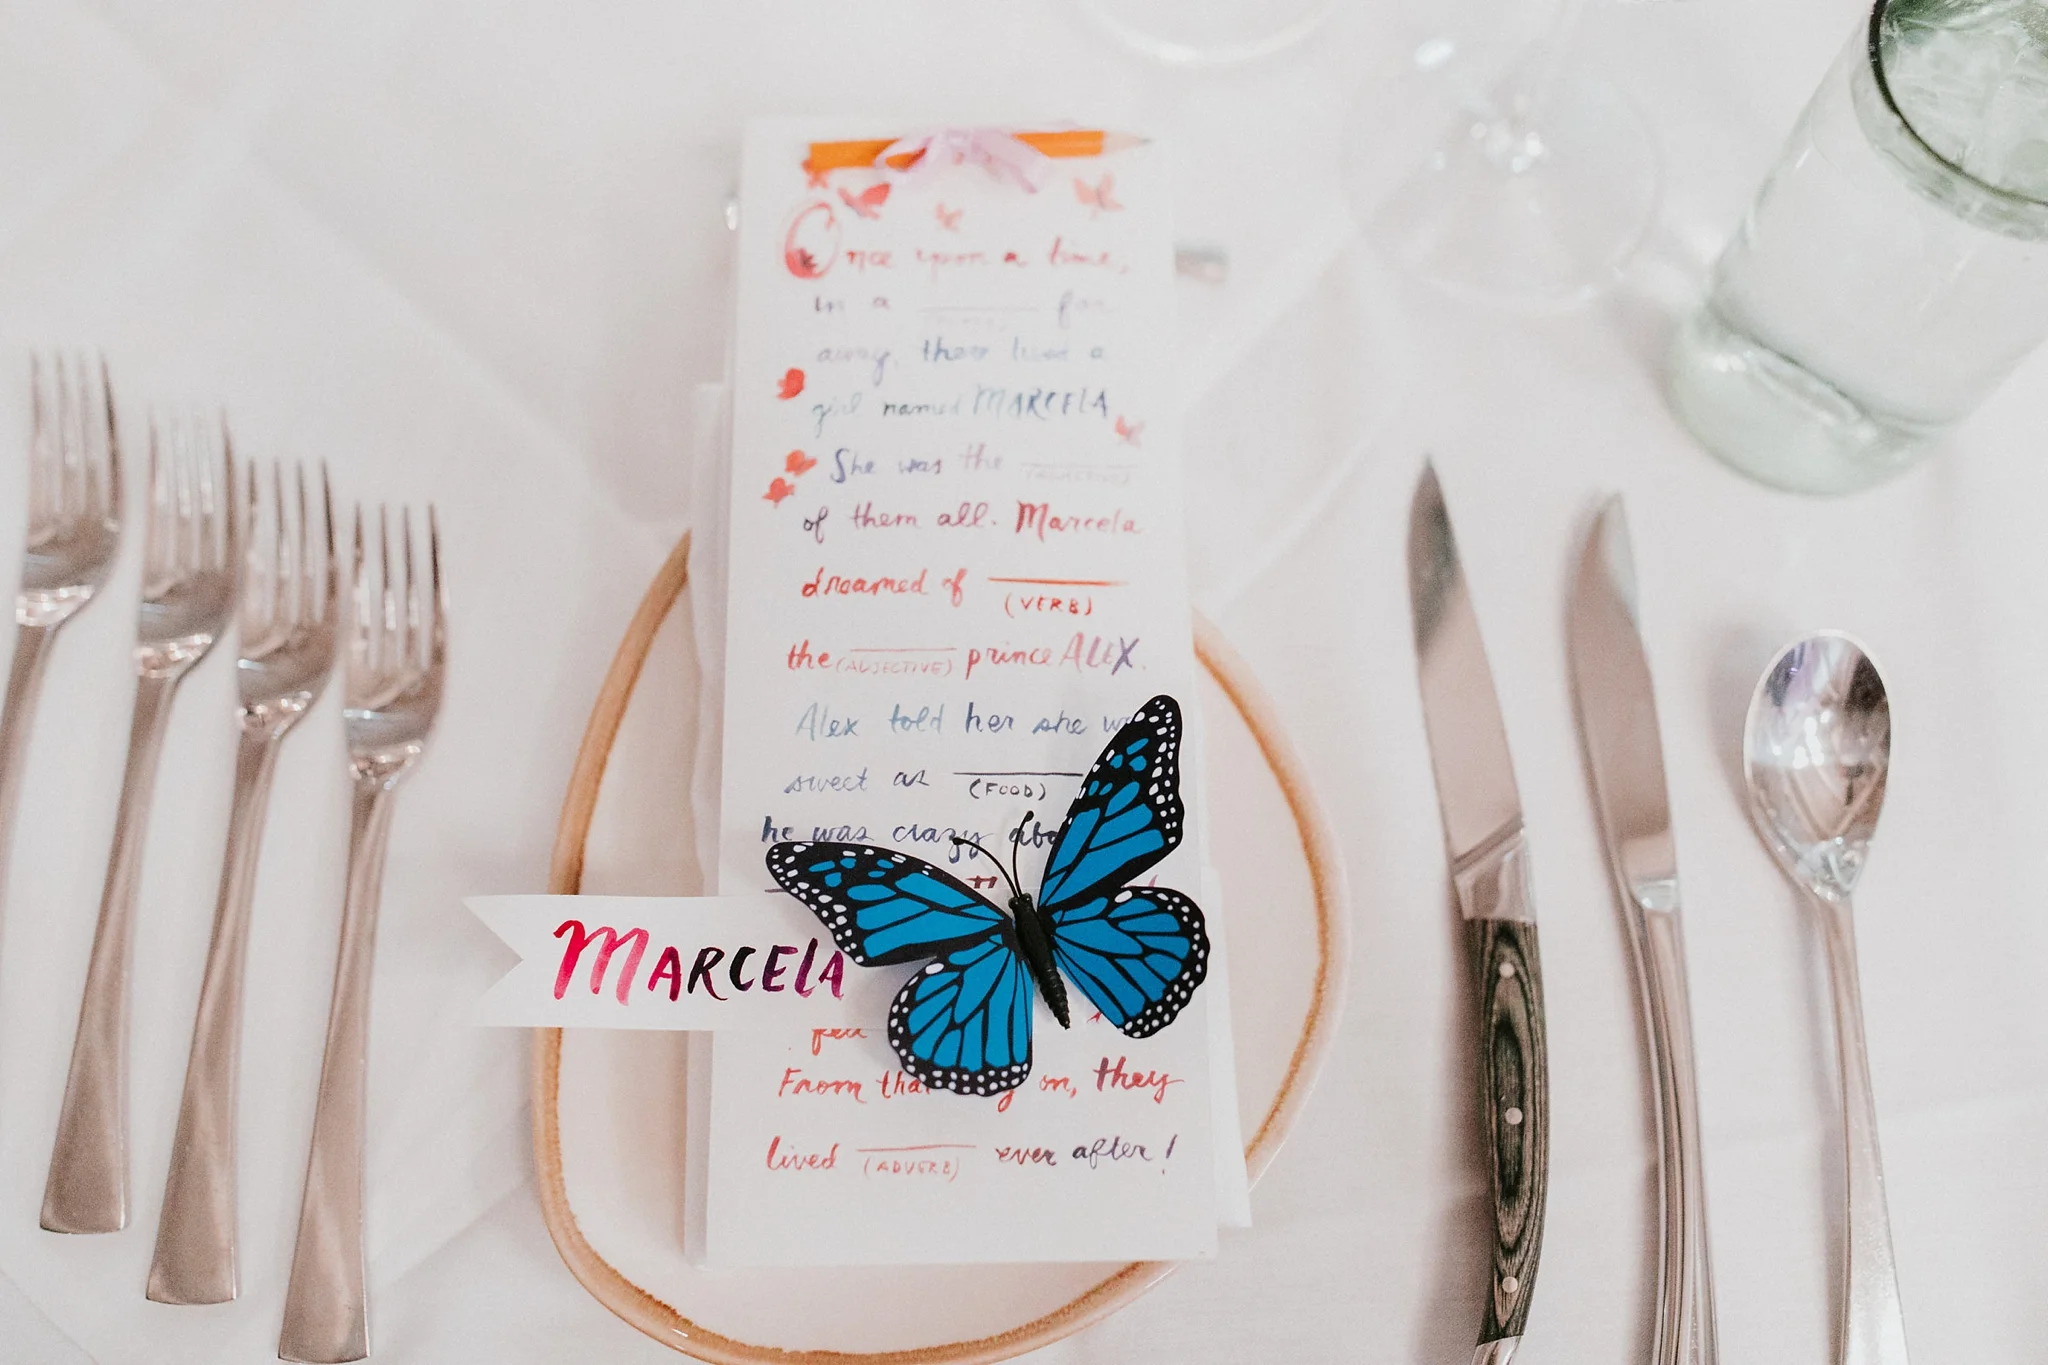 Once upon a time,
in a far
away, there lived a
girl named MARCELA
She was the (ADJECTIVE)
of them all. Marcela
dreamed of
(VERB)
the (ADJECTIVE) prince ALEX.
Alex told her she
sweet as
(FOOD)
he was crazy
MARCELA
From on, they
lived (ADVERB) ever after!